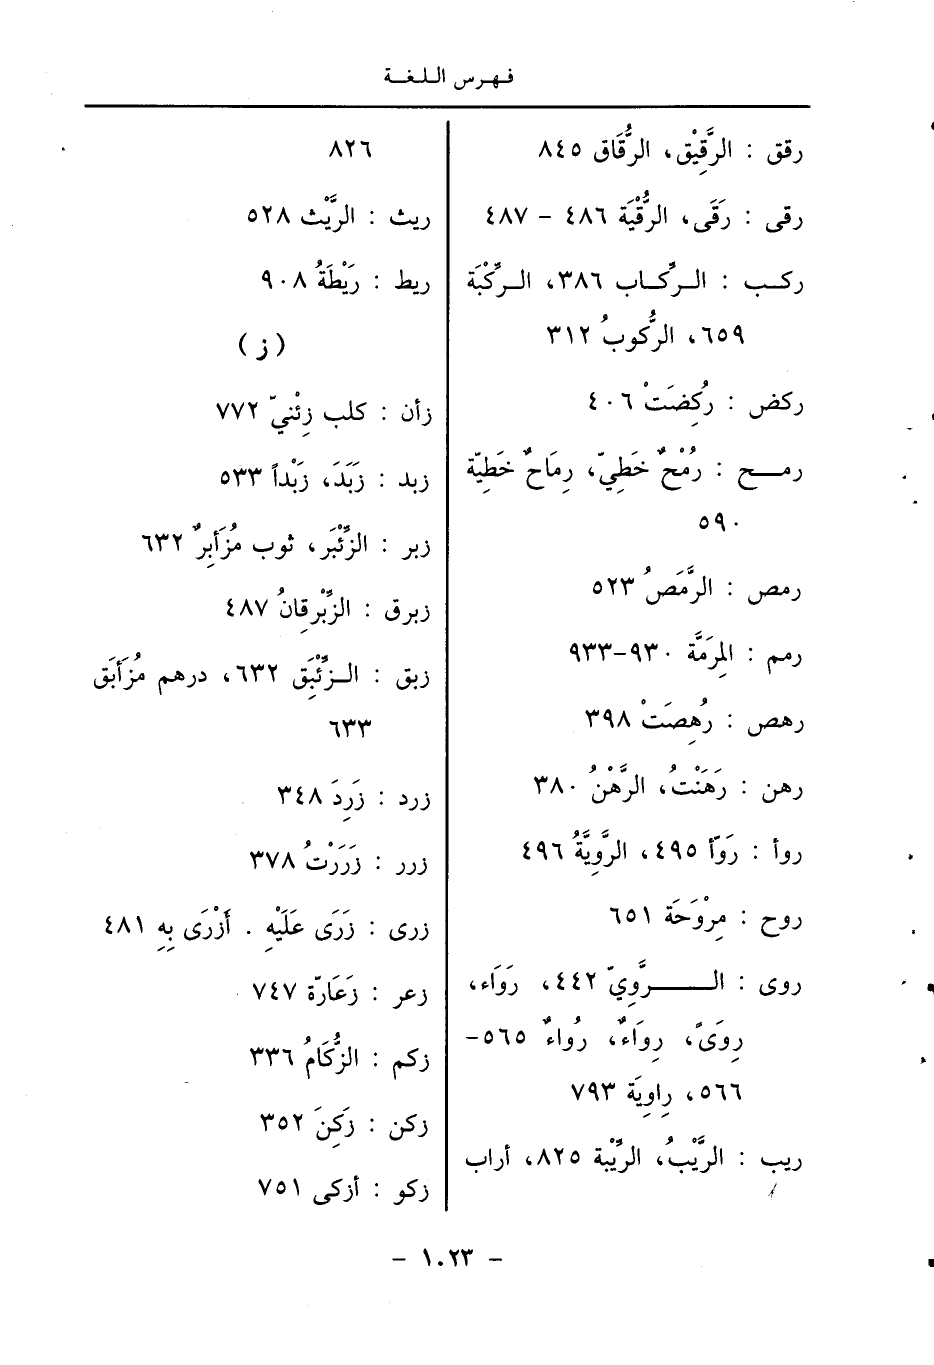 فهرس اللغة
رقق : الرَّقِيْق، الرُّقَاق ٨٤٥
رقى : رَقَى، الرُّقْيَة ٤٨٦ - ٤٨٧
ركب : الركاب ٣٨٦، الركْبَة
٦٥٩، الرُّكوبُ ٣١٢
ركض : رُكِضَتْ ٤٠٦
رمح : رُمْحٌ خَطِيّ، رِمَاحٌ خَطِيّة
٥٩٠
رمص : الرَّمَصُ ٥٢٣
رمم : المِرَمَّة ٩٣٠-٩٣٣
رهص : رُهِصَتْ ٣٩٨
رهن : رَهَنْتُ، الرَّهْنُ ٣٨٠
روأ : رَوّأ ٤٩٥، الرَّوِيَّةُ ٤٩٦
روح : مِرْوَحَة ٦٥١
روى : الرَّوِيّ ٤٤٢، رَوَاء،
رِوَىً، رِوَاءٌ، رُواءٌ ٥٦٥-
٥٦٦، رِاوِيَة ٧٩٣
ريب : الرَّيْبُ، الرِّيْبة ٨٢٥، أراب
٨٢٦
ريث : الرَّيْث ٥٢٨
ريط : رَيْطَةُ ٩٠٨
( ز )
زأن : كلب زِئْنيّ ٧٧٢
زبد : زَبَدَ، زَبْداً ٥٣٣
زبر : الزِّئْبَر، ثوب مُزَأبِرٌ ٦٣٢
زبرق : الزِّبْرِقانُ ٤٨٧
زبق : الزِّئْبِق ٦٣٢، درهم مُزَأبَق
٦٣٣
زرد : زَرِدَ ٣٤٨
زرر : زَرَرْتُ ٣٧٨
زرى : زَرَى عَلَيْهِ . أَزْرَى بِهِ ٤٨١
زعر : زَعَارّة ٧٤٧
زكم : الزُّكَامُ ٣٣٦
زكن : زَكِنَ ٣٥٢
زكو : أزكى ٧٥١
- ١٠٢٣ -